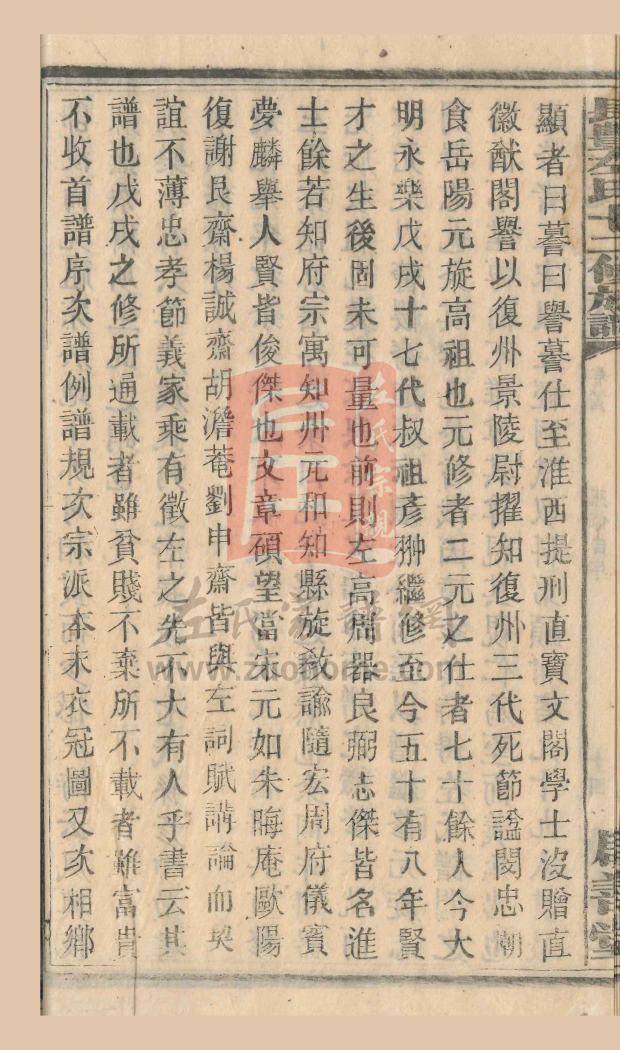 顯者曰謩曰譽謩仕至淮西提刑直寶文閣學士沒贈直
徽猷閣譽以復州景陵尉擢知復州三代死節諡閔忠潮
食岳陽元旋高祖也元修者二元之仕者七十餘人今大
明永樂戊戌十七代叔祖彥翀繼修至今五十有八年賢
才之生後固未可量也前則左高周器良弼志傑皆名進
士餘若知府宗寓知州元和知縣旋敎諭隨宏周府儀賓
夢麟舉人賢皆俊傑也文章碩望當宋元如朱晦庵歐陽
復謝艮齋楊誠齋胡澹菴劉申齋皆與左詞賦講論而契
誼不薄忠孝節義家乘有徵左之先不大有人乎書云其
譜也戊戌之修所通載者雖貧賤不棄所不載者雖富貴
不收首譜序次譜例譜規次宗派本末衣冠圖又次相鄉
左氏宗親
左氏宗譜網
www.zuohome.com